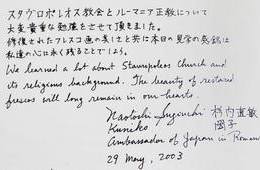 スタヴロポレオス教会とルーマニア正教について
大変貴重な勉強をさせて頂きました。
修復されたフレスコ画の美しさと共に本日の見学の感銘は
私達の心に永く残ることでしょう。
We learned a lot about Stavropoleos Church and
its religious background. The beauty of restored
frescos will long remain in our hearts.
Naotoshi Sugiuchi 杉内直敏
Kuniko 国子
Ambassador of Japan in Romania
29 May, 2003